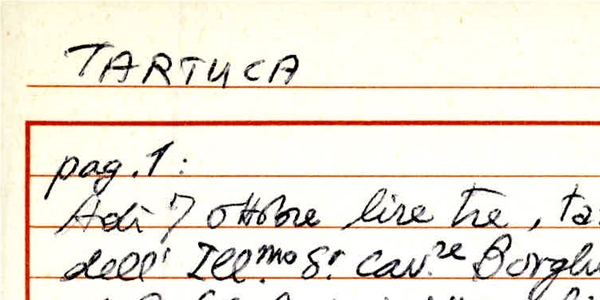 TARTUCA
pag. 1:
Adì 7 ottobre lire tre, ta
dell' Ill.mo S.r Cav.re Borghe